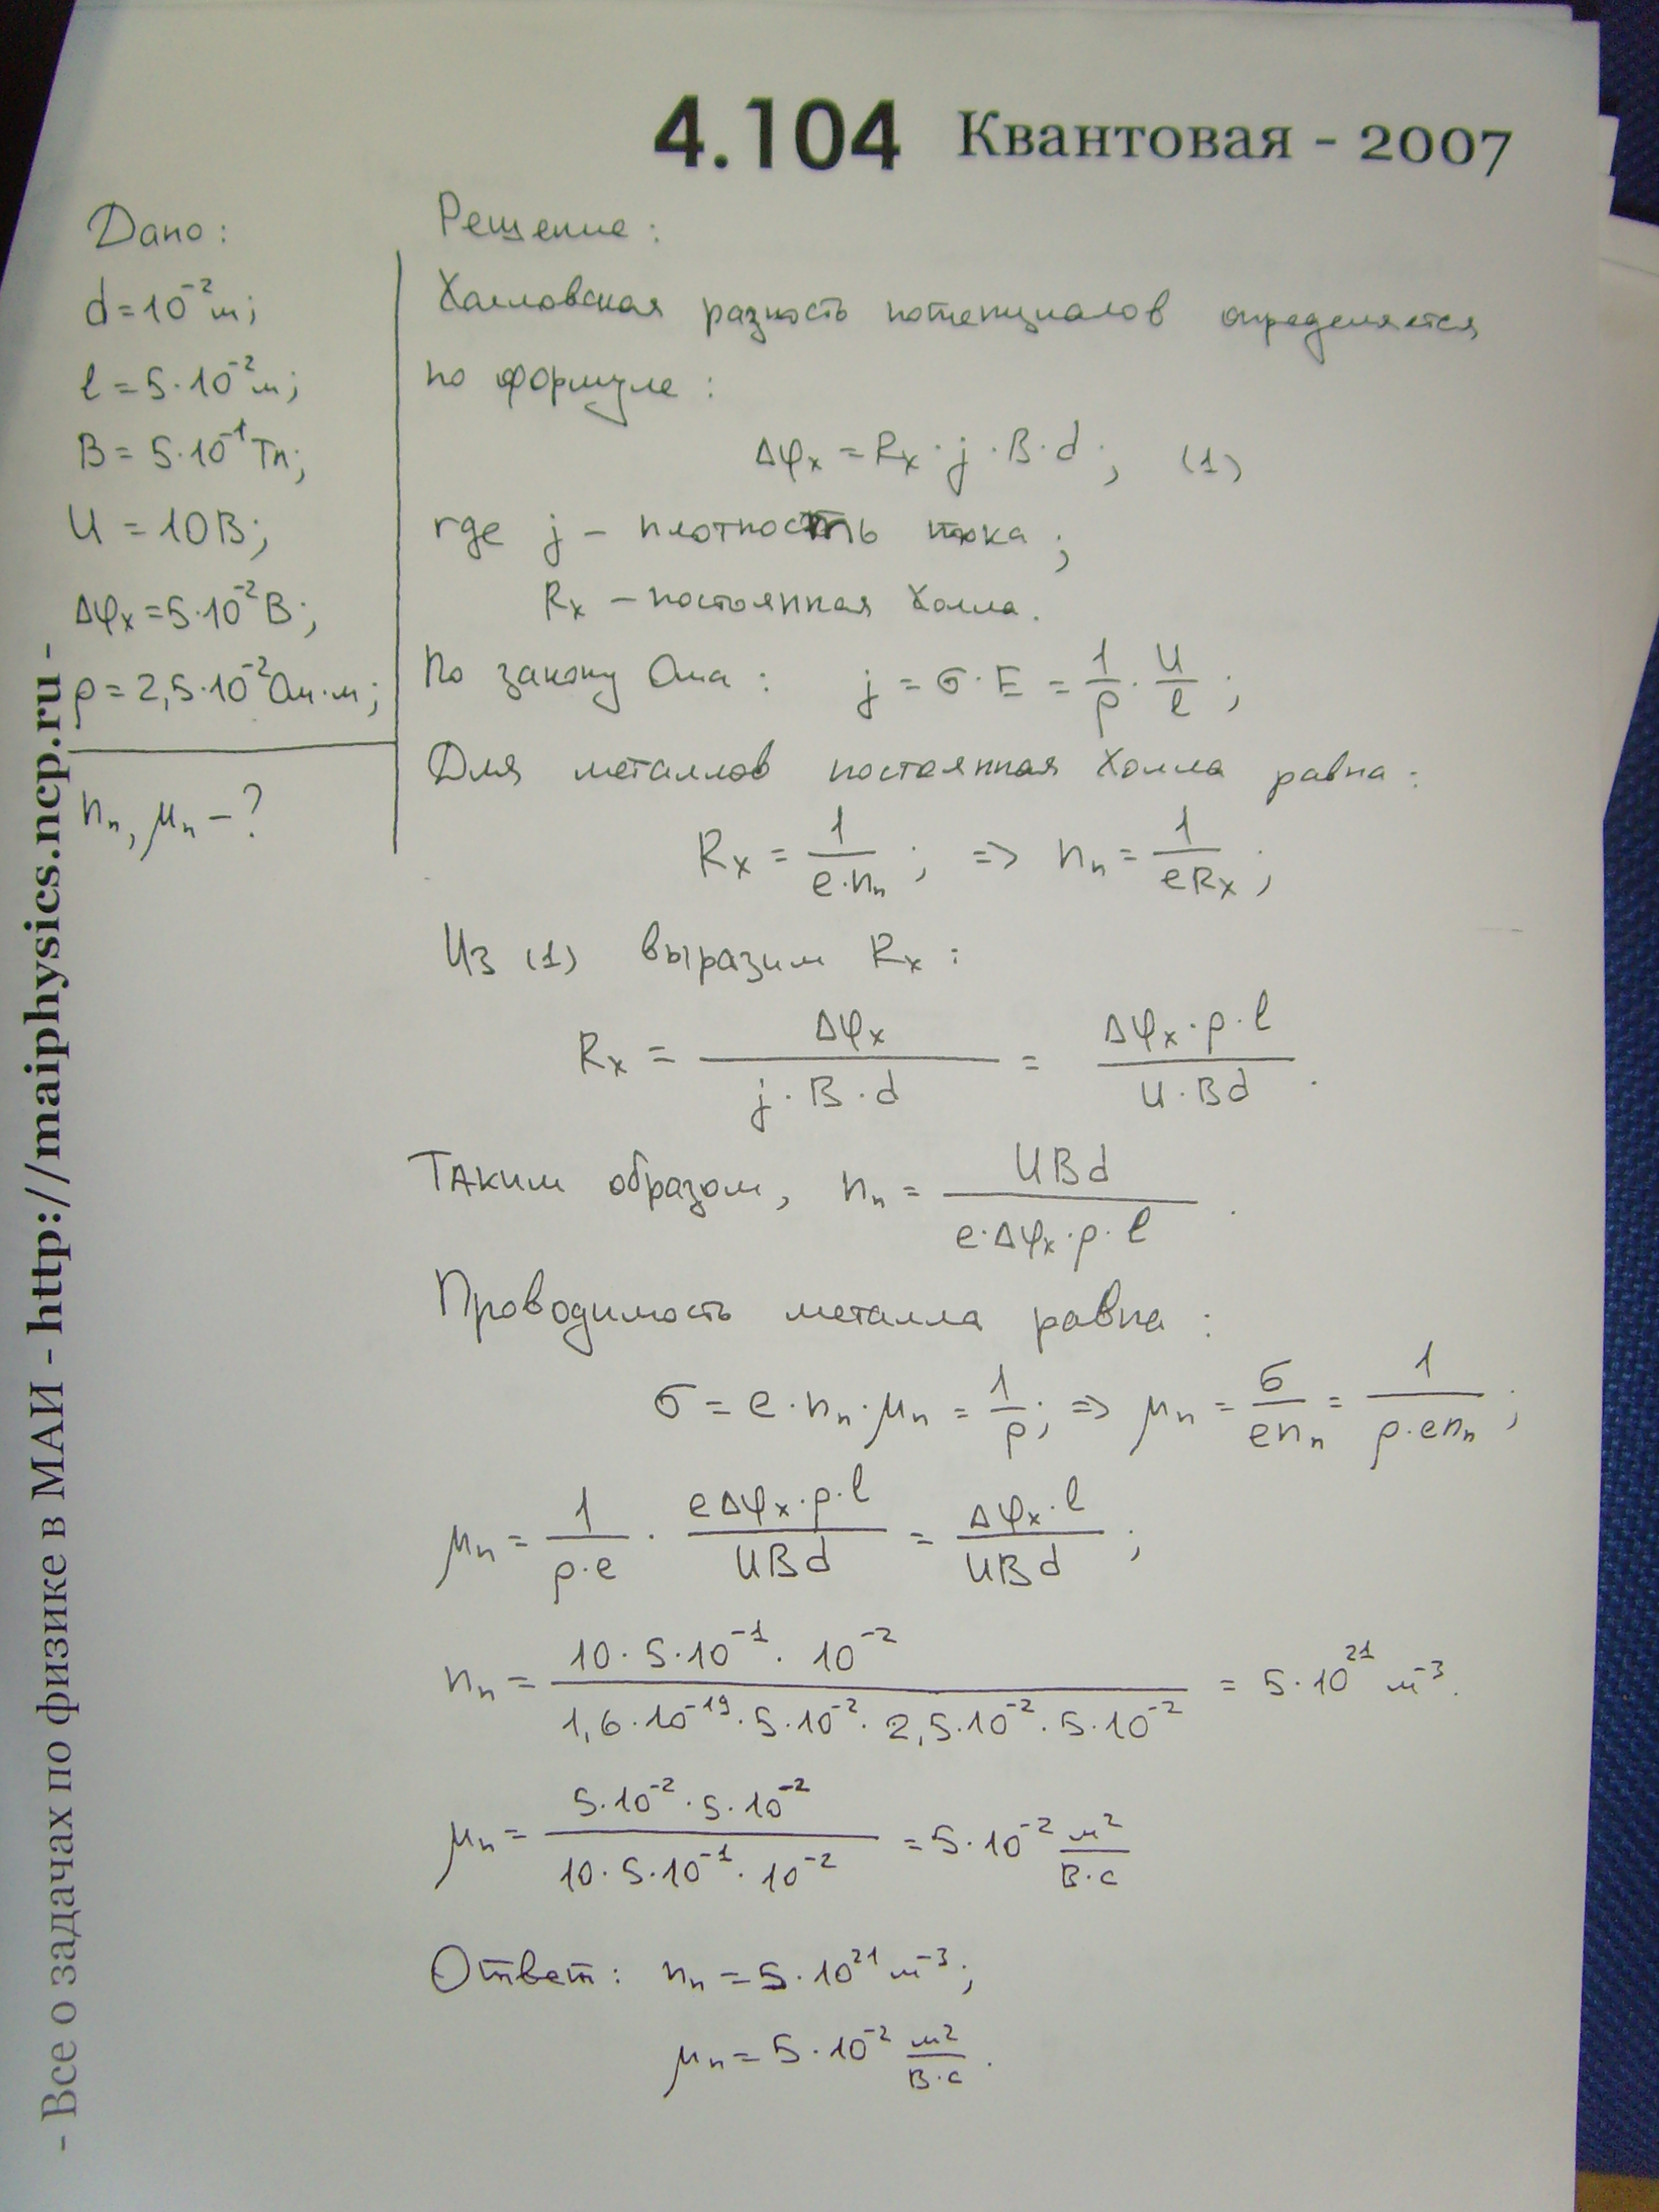 4.104 Квантовая - 2007
Дано:
d = 10⁻² м;
l = 5·10⁻² м;
B = 5·10⁻¹ Тл;
U = 10 В;
Δφₓ = 5·10⁻² В;
ρ = 2,5·10⁻² Ом·м;
nₙ, μₙ - ?
Решение:
Холловская разность потенциалов определяется
по формуле:
Δφₓ = Rₓ·j·B·d; (1)
где j - плотность тока;
Rₓ - постоянная Холла.
По закону Ома: j = σ·E = 1/ρ · U/l;
Для металлов постоянная Холла равна:
Rₓ = 1/(e·nₙ); => nₙ = 1/(eRₓ);
Из (1) выразим Rₓ:
Rₓ = Δφₓ/(j·B·d) = (Δφₓ·ρ·l)/(U·Bd).
Таким образом, nₙ = UBd/(e·Δφₓ·ρ·l).
Проводимость металла равна:
σ = e·nₙ·μₙ = 1/ρ; => μₙ = σ/(enₙ) = 1/(ρ·enₙ);
μₙ = 1/(ρ·e) · (eΔφₓ·ρ·l)/(UBd) = (Δφₓ·l)/(UBd);
nₙ = (10·5·10⁻¹·10⁻²)/(1,6·10⁻¹⁹·5·10⁻²·2,5·10⁻²·5·10⁻²) = 5·10²¹ м⁻³.
μₙ = (5·10⁻²·5·10⁻²)/(10·5·10⁻¹·10⁻²) = 5·10⁻² м²/(В·с)
Ответ: nₙ = 5·10²¹ м⁻³;
μₙ = 5·10⁻² м²/(В·с).
- Все о задачах по физике в МАИ - http://maiphysics.ncp.ru -